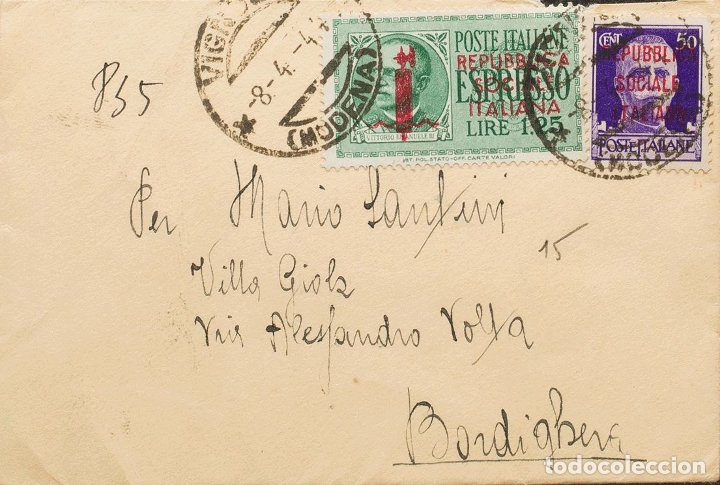 855
-8-4-4
(MODENA)
POSTE ITALIANE
ESPRESSO
REPUBBLICA
SOCIALE
ITALIANA
LIRE 1.25
VITTORIO EMANUELE III
IST. POL. STATO-OFF. CARTE VALORI
CENT 50
REPUBBLICA
SOCIALE
ITALIANA
POSTE ITALIANE
Per Mario Santini
15
Villa Giola
Via Alessandro Volta
Bordighera
todocoleccion.net